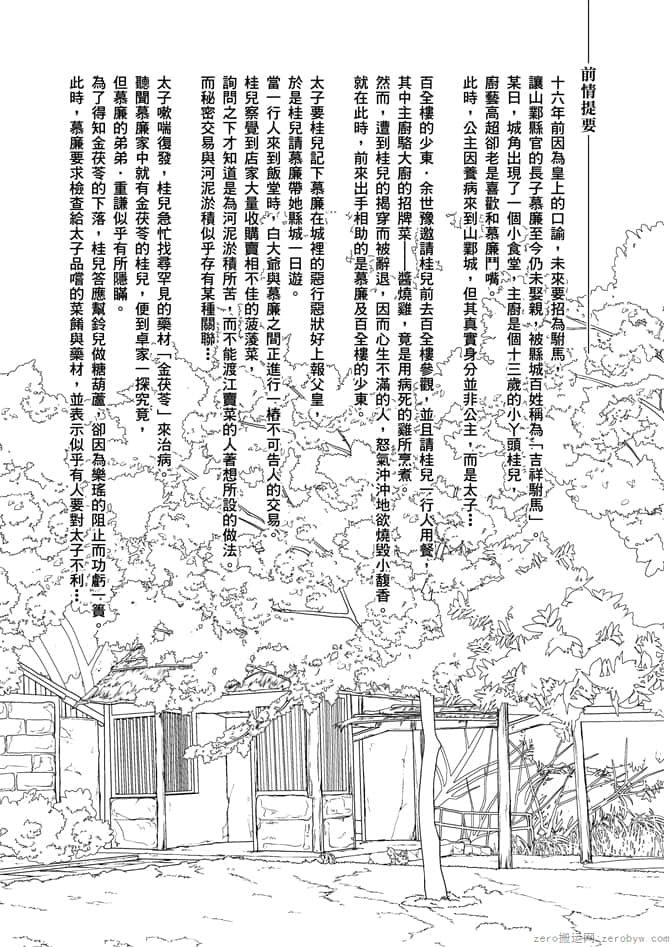 前情提要
十六年前因為皇上的口諭，未來要招為駙馬，
讓山鄴縣官的長子慕廉至今仍未娶親，被縣城百姓稱為「吉祥駙馬」。
某日，城角出現了一個小食堂，主廚是個十三歲的小丫頭桂兒，
廚藝高超卻老是喜歡和慕廉鬥嘴。
此時，公主因養病來到山鄴城，但其真實身分並非公主，而是太子…
百全樓的少東·余世豫邀請桂兒前去百全樓參觀，並且請桂兒一行人用餐，
其中主廚駱大廚的招牌菜——醬燒雞，竟是用病死的雞所烹煮。
然而，遭到桂兒的揭穿而被辭退，因而心生不滿的人，怒氣沖沖地欲燒毀小馥香。
就在此時，前來出手相助的是慕廉及百全樓的少東。
太子要桂兒記下慕廉在城裡的惡行惡狀好上報父皇，
於是桂兒請慕廉帶她縣城一日遊。
當一行人來到飯堂時，白大爺與慕廉之間正進行一樁不可告人的交易。
桂兒察覺到店家大量收購賣相不佳的菠菠菜，
詢問之下才知道是為河泥淤積所苦，而不能渡江賣菜的人著想所設的做法。
而秘密交易與河泥淤積似乎存有某種關聯…
太子嗽喘復發，桂兒急忙找尋罕見的藥材「金茯苓」來治病。
聽聞慕廉家中就有金茯苓的桂兒，便到卓家一探究竟，
但慕廉的弟弟·重謙似乎有所隱瞞。
為了得知金茯苓的下落，桂兒答應幫鈴兒做糖葫蘆，卻因為樂瑤的阻止而功虧一簣。
此時，慕廉要求檢查給太子品嚐的菜餚與藥材，並表示似乎有人要對太子不利…
zero搬运网:www.zerobyw.com